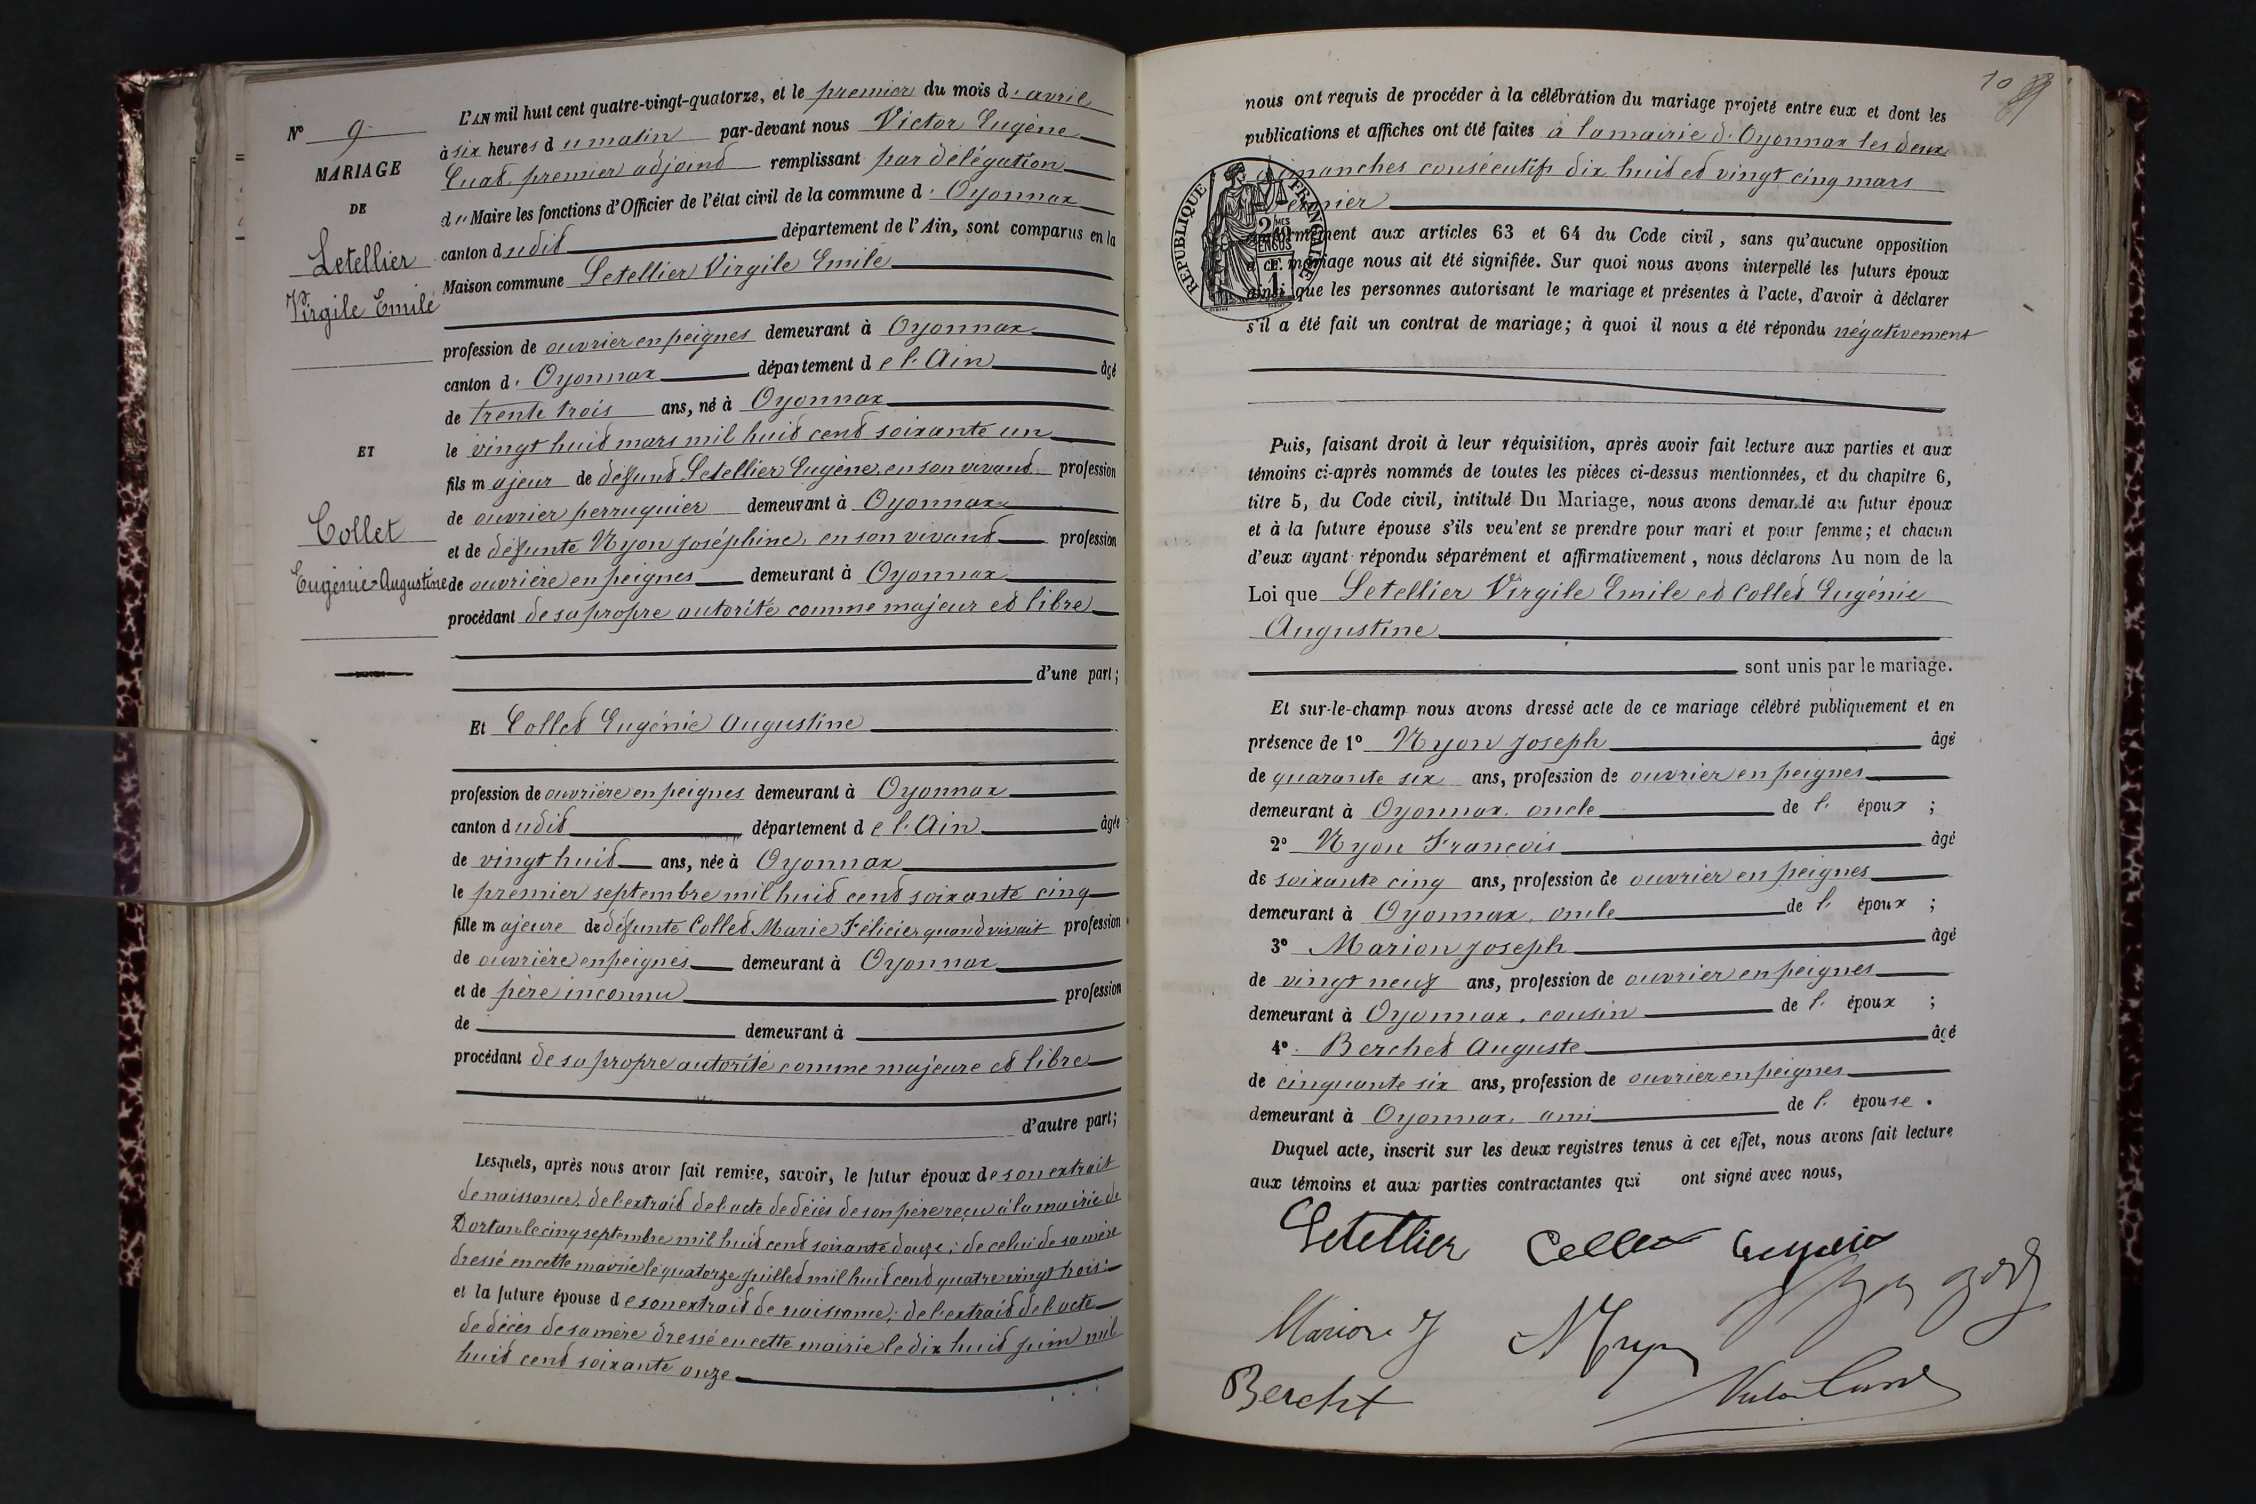 N° 9
MARIAGE
DE
Letellier
Virgile Emile
ET
Collet
Eugénie Augustine
L'AN mil huit cent quatre-vingt-quatorze, et le premier du mois d'avril
à six heures du matin par-devant nous Victor Eugène
Cuat, premier adjoint remplissant par délégation
du Maire les fonctions d'Officier de l'état civil de la commune d'Oyonnax
canton dudit département de l'Ain, sont comparus en la
Maison commune Letellier Virgile Emile
profession de ouvrier en peignes demeurant à Oyonnax
canton d'Oyonnax département de l'Ain âgé
de trente trois ans, né à Oyonnax
le vingt huit mars mil huit cent soixante un
fils majeur de défunt Letellier Eugène, en son vivant profession
de ouvrier perruquier demeurant à Oyonnax
et de défunte Nyon Joséphine, en son vivant profession
de ouvrière en peignes demeurant à Oyonnax
procédant de sa propre autorité comme majeur et libre
d'une part;
Et Collet Eugénie Augustine
profession de ouvrière en peignes demeurant à Oyonnax
canton dudit département de l'Ain âgée
de vingt huit ans, née à Oyonnax
le premier septembre mil huit cent soixante cinq
fille majeure de défunte Collet Marie Félicie quand vivait profession
de ouvrière en peignes demeurant à Oyonnax
et de père inconnu profession
de demeurant à
procédant de sa propre autorité comme majeure et libre
d'autre part;
Lesquels, après nous avoir fait remise, savoir, le futur époux de son extrait
de naissance, de l'extrait de l'acte de décès de son père reçu à la mairie de
Dortan le cinq septembre mil huit cent soixante douze; de celui de sa mère
dressé en cette mairie le quatorze juillet mil huit cent quatre vingt trois;
et la future épouse de son extrait de naissance; de l'extrait de l'acte
de décès de sa mère dressé en cette mairie le dix huit juin mil
huit cent soixante onze
10
nous ont requis de procéder à la célébration du mariage projeté entre eux et dont les
publications et affiches ont été faites à la mairie d'Oyonnax les deux
dimanches consécutifs dix huit et vingt cinq mars
dernier
RÉPUBLIQUE FRANÇAISE
conformément aux articles 63 et 64 du Code civil, sans qu'aucune opposition
à ce mariage nous ait été signifiée. Sur quoi nous avons interpellé les futurs époux
ainsi que les personnes autorisant le mariage et présentes à l'acte, d'avoir à déclarer
s'il a été fait un contrat de mariage; à quoi il nous a été répondu négativement
Puis, faisant droit à leur réquisition, après avoir fait lecture aux parties et aux
témoins ci-après nommés de toutes les pièces ci-dessus mentionnées, et du chapitre 6,
titre 5, du Code civil, intitulé Du Mariage, nous avons demandé au futur époux
et à la future épouse s'ils veulent se prendre pour mari et pour femme; et chacun
d'eux ayant répondu séparément et affirmativement, nous déclarons Au nom de la
Loi que Letellier Virgile Emile et Collet Eugénie
Augustine
sont unis par le mariage.
Et sur-le-champ nous avons dressé acte de ce mariage célébré publiquement et en
présence de 1° Nyon Joseph âgé
de quarante six ans, profession de ouvrier en peignes
demeurant à Oyonnax, oncle de l'époux;
2° Nyon François âgé
de soixante cinq ans, profession de ouvrier en peignes
demeurant à Oyonnax, oncle de l'époux;
3° Marion Joseph âgé
de vingt neuf ans, profession de ouvrier en peignes
demeurant à Oyonnax, cousin de l'époux;
4° Berchet Auguste âgé
de cinquante six ans, profession de ouvrier en peignes
demeurant à Oyonnax, ami de l'épouse.
Duquel acte, inscrit sur les deux registres tenus à cet effet, nous avons fait lecture
aux témoins et aux parties contractantes qui ont signé avec nous,
Letellier Collet Eugénie
Marion J
Berchet